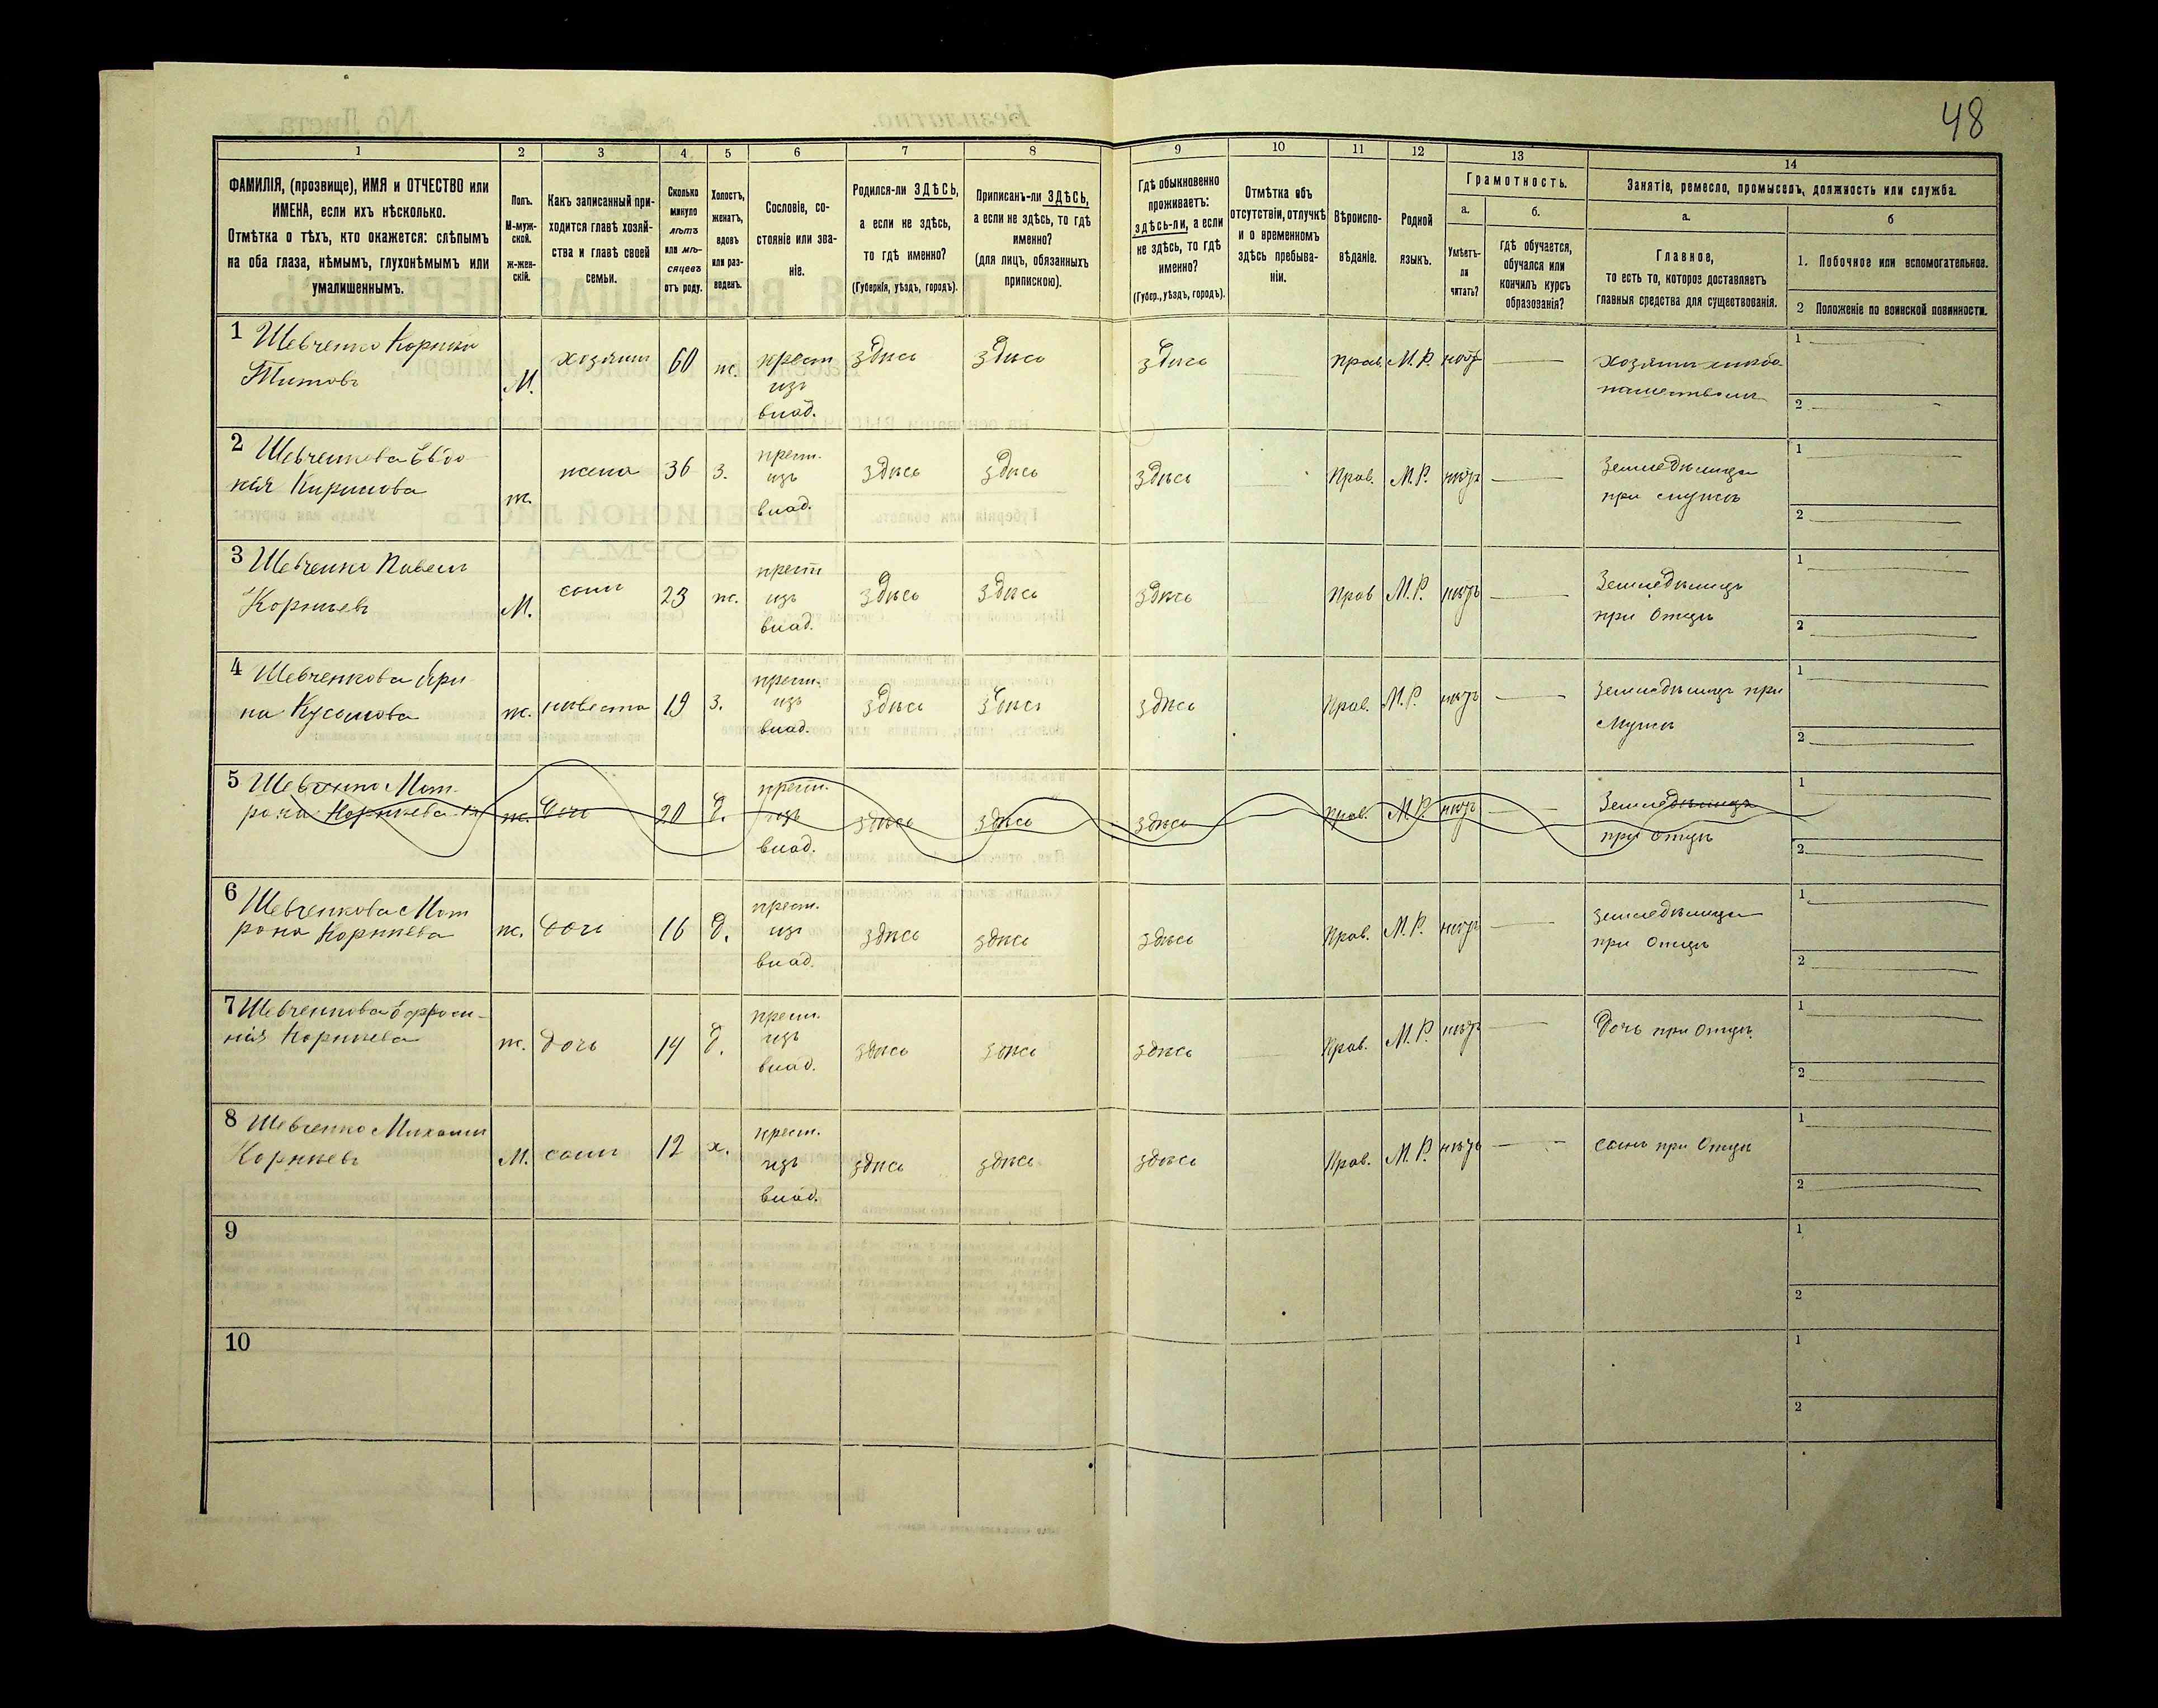 48
1
2
3
4
5
6
7
8
9
10
11
12
13
14
ФАМИЛІЯ, (прозвище), ИМЯ и ОТЧЕСТВО или
ИМЕНА, если ихъ нѣсколько.
Отмѣтка о тѣхъ, кто окажется: слѣпымъ
на оба глаза, нѣмымъ, глухонѣмымъ или
умалишеннымъ.
Полъ.
М-муж-
ской.
ж-жен-
скій.
Какъ записанный при-
ходится главѣ хозяй-
ства и главѣ своей
семьи.
Сколько
минуло
лѣтъ
или мѣ-
сяцевъ
отъ роду.
Холостъ,
женатъ,
вдовъ
или раз-
веденъ.
Сословіе, со-
стояніе или зва-
ніе.
Родился-ли ЗДѢСЬ,
а если не здѣсь,
то гдѣ именно?
(Губернія, уѣздъ, городъ).
Приписанъ-ли ЗДѢСЬ,
а если не здѣсь, то гдѣ
именно?
(для лицъ, обязанныхъ
припискою).
Гдѣ обыкновенно
проживаетъ:
здѣсь-ли, а если
не здѣсь, то гдѣ
именно?
(Губер., уѣздъ, городъ).
Отмѣтка объ
отсутствіи, отлучкѣ
и о временномъ
здѣсь пребыва-
ніи.
Вѣроиспо-
вѣданіе.
Родной
языкъ.
Грамотность.
а.
Умѣетъ-
ли
читать?
б.
гдѣ обучается,
обучался или
кончилъ курсъ
образованія?
Занятіе, ремесло, промыселъ, должность или служба.
а.
Главное,
то есть то, которое доставляетъ
главныя средства для существованія.
б
1. Побочное или вспомогательное.
2 Положеніе по воинской повинности.
1 Шевченко Корнѣй
Титовъ
М.
хозяинъ
60
ж.
крест
изъ
влад.
здѣсь
здѣсь
здѣсь
Прав.
М.Р.
нѣтъ
хозяинъ
1
2
2 Шевченкова Евдо
кія Кирилова
ж.
жена
36
з.
крест.
изъ
влад.
здѣсь
здѣсь
здѣсь
Прав.
М.Р.
нѣтъ
Земледѣлица
при мужѣ
1
2
3 Шевченко Павелъ
Корнѣевъ
М.
сынъ
23
ж.
крест
изъ
влад.
здѣсь
здѣсь
здѣсь
Прав
М.Р.
нѣтъ
Земледѣлецъ
при Отцѣ
1
2
4 Шевченкова Ири
на
ж.
невѣста
19
з.
крест.
изъ
влад.
здѣсь
здѣсь
здѣсь
Прав.
М.Р.
нѣтъ
Земледѣлица при
Мужѣ
1
2
5 Шевченко Мот
рона Корнѣева
ж.
дочь
20
д.
крест.
изъ
влад.
здѣсь
здѣсь
здѣсь
Прав.
М.Р.
нѣтъ
Земледѣлица
при отцѣ
1
2
6 Шевченкова Мот
рона Корнѣева
ж.
дочь
16
д.
крест.
изъ
влад.
здѣсь
здѣсь
здѣсь
Прав.
М.Р.
нѣтъ
Земледѣлица
при Отцѣ
1
2
7 Шевченкова Ефроси-
нія Корнѣева
ж.
дочь
14
д.
крест.
изъ
влад.
здѣсь
здѣсь
здѣсь
Прав.
М.Р.
нѣтъ
Дочь при Отцѣ
1
2
8 Шевченко Михаилъ
Корнѣевъ
М.
сынъ
12
х.
крест.
изъ
влад.
здѣсь
здѣсь
здѣсь
Прав.
М.Р.
нѣтъ
сынъ при Отцѣ
1
2
9
1
2
10
1
2